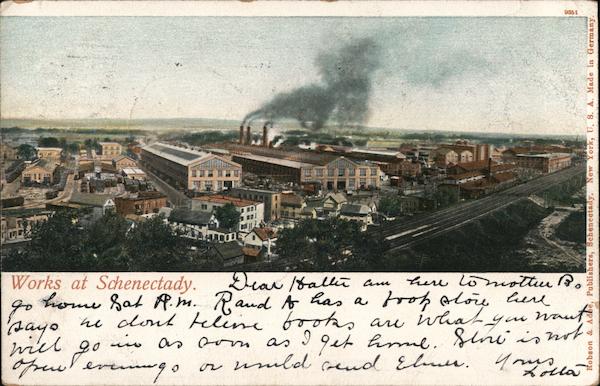 9551
Works at Schenectady.
Dear Hattie am here to mother Bs
go home Sat P.M. R and A has a book store here
says he dont believe books are what you want
will go in as soon as I get home. Store is not
open evenings or would send Elmer. Yours
Lotta
Robson & Adee, Publishers, Schenectady, New York, U. S. A. Made in Germany.